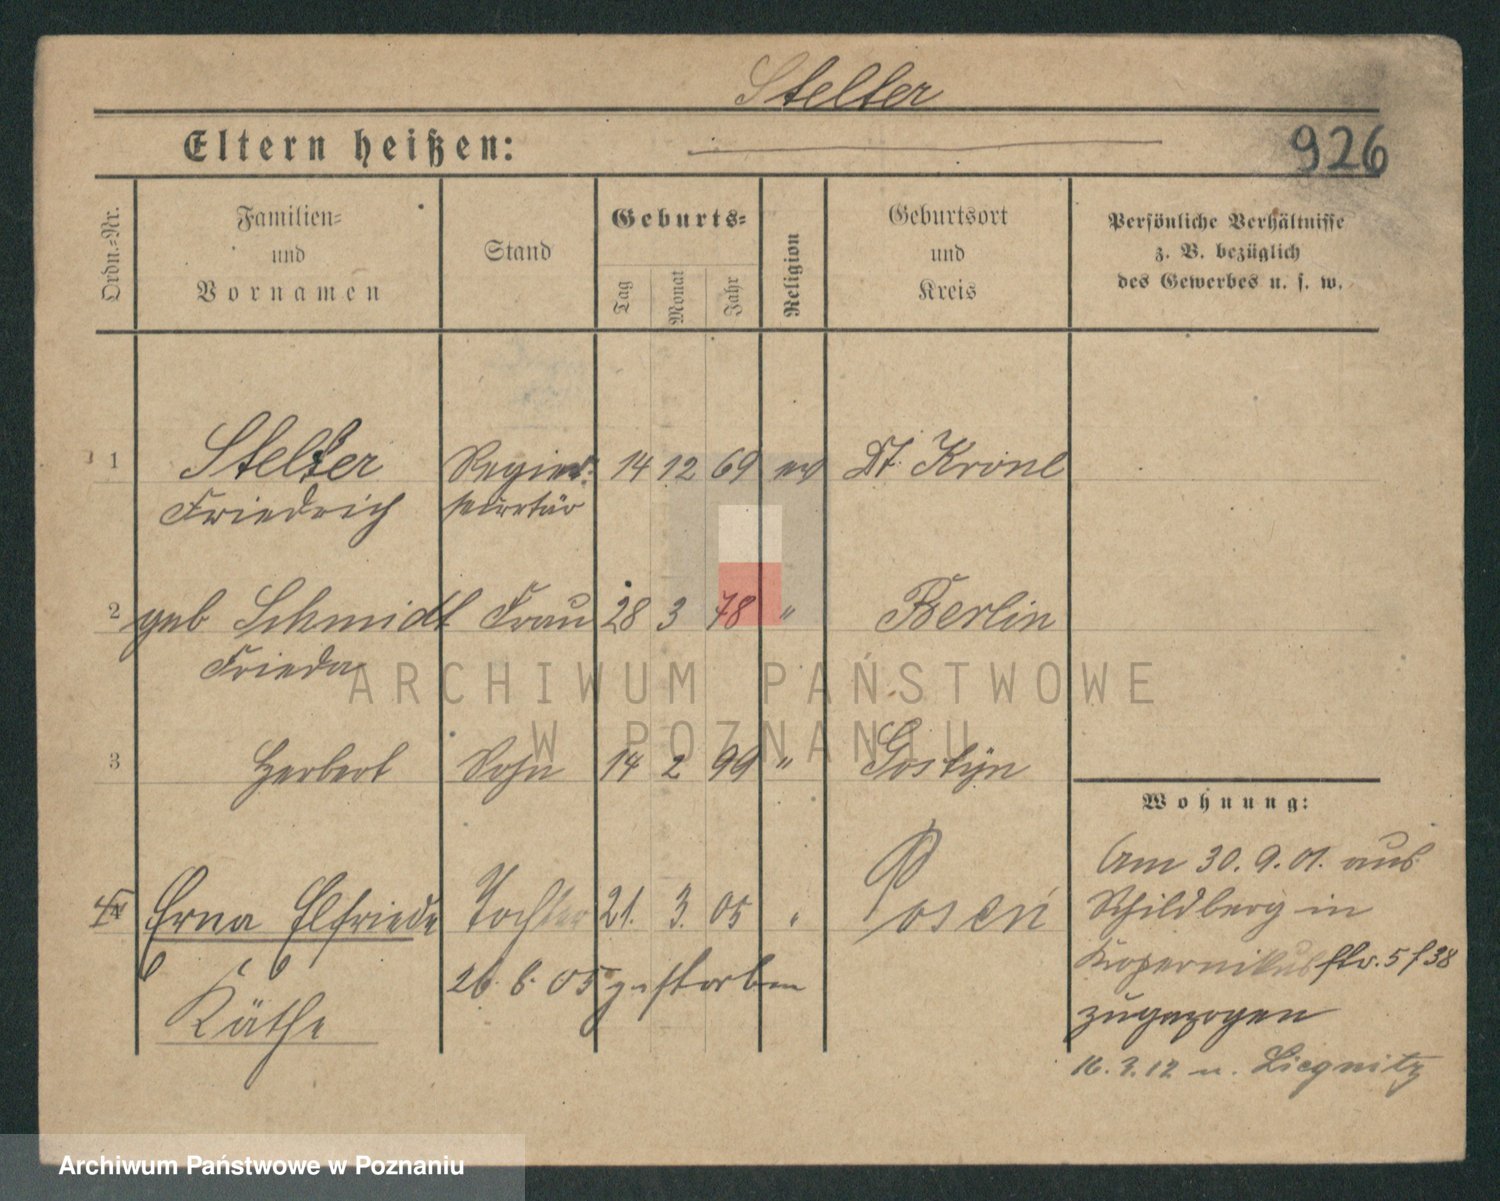 Stelter
Eltern heißen:
926
Ordn.=Nr.
Familien=
und
Vornamen
Stand
Geburts=
Tag
Monat
Jahr
Religion
Geburtsort
und
Kreis
Persönliche Verhältnisse
z. B. bezüglich
des Gewerbes u. s. w.
1 Stelter Regier. 14 12 69 ev Dt Krone
Friedrich sekretär
2 geb Schmidt Frau 28 3 78 " Berlin
Frieda
3 Herbert Sohn 14 2 99 " Gostyn
Wohnung:
Am 30.9.01. aus
Schildberg in
Kopernikusstr. 5 f 38
zugezogen
16.3.12 n. Liegnitz
4 Erna Elfriede Tochter 21. 3. 05 " Posen
26.6.05 gestorben
Käthe
ARCHIWUM PAŃSTWOWE
W POZNANIU
Archiwum Państwowe w Poznaniu